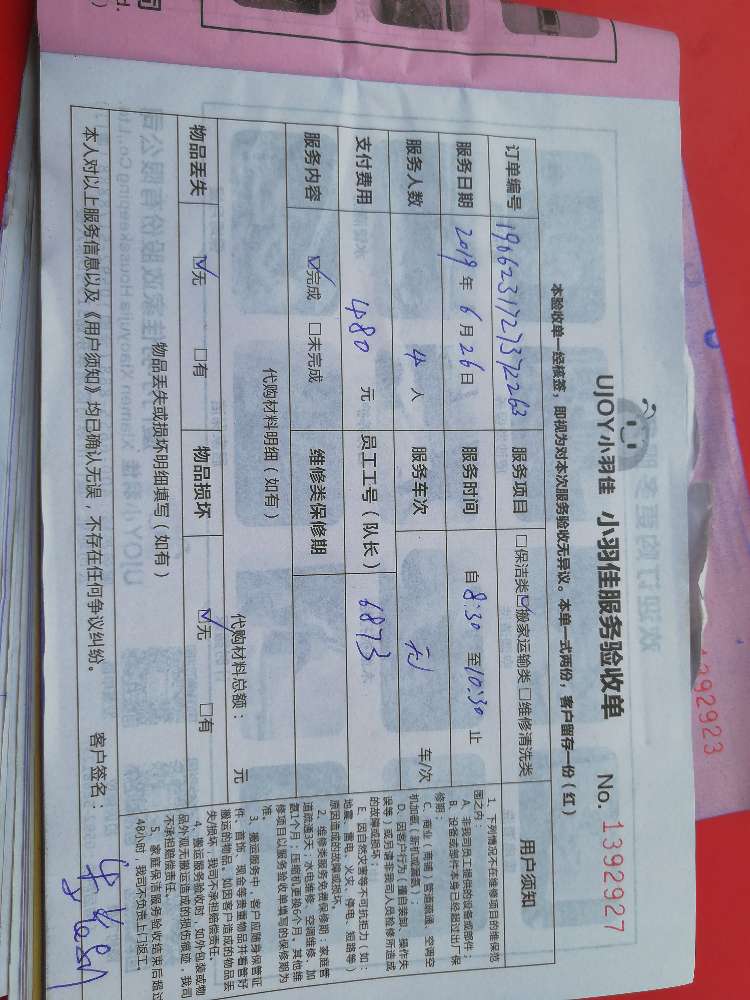 UJOY小羽佳 小羽佳服务验收单 No. 1392927
本验收单一经核签，即视为对本次服务验收无异议。本单一式两份，客户留存一份（红）
订单编号 1906231727372263 服务项目 □保洁类☑搬家运输类□维修清洗类
服务日期 2019年6月26日 服务时间 自8:30至10:30止
服务人数 4人 服务车次 车/次
支付费用 480元 员工工号（队长） 6873
服务内容 ☑完成 □未完成 维修类保修期
代购材料明细（如有） 代购材料总额： 元
物品丢失 ☑无 □有 物品损坏 ☑无 □有
物品丢失或损坏明细填写（如有）
本人对以上服务信息以及《用户须知》均已确认无误，不存在任何争议纠纷。 客户签名：
用户须知
1、下列情况不在维修项目的维保范
围之内：
A、非我司员工提供的设备或部件；
B、设备或部件本身已经超过出厂保
修期；
C、商业（商铺）管道疏通、空调空
机加氨（新机或漏氨）；
D、因用户行为（擅自装卸、操作失
误等）或月请非我司人员检修所造成
的故障或损坏；
E、因自然灾害等不可抗拒力（如：
地震、雷电、火灾、停电、短路等）
原因造成的故障或损坏。
2、维修类服务免费保修期：家庭管
道疏通3天，水电维修、空调维修、加
氨1个月；压缩机更换6个月。其他维
修项目以服务验收单填写的保修期为
准。
3、搬运服务中，客户应随身保管证
件、首饰、现金等贵重物品并看管好
搬运的物品。如因客户造成的物品丢
失/损坏，我司不承担赔偿责任。
4、搬运服务验收时，如外包装或物
品外观无搬运造成的损伤痕迹，我司
不承担赔偿责任。
5、家庭保洁服务验收结束后超过
48小时，我司不负责上门返工。
1392923